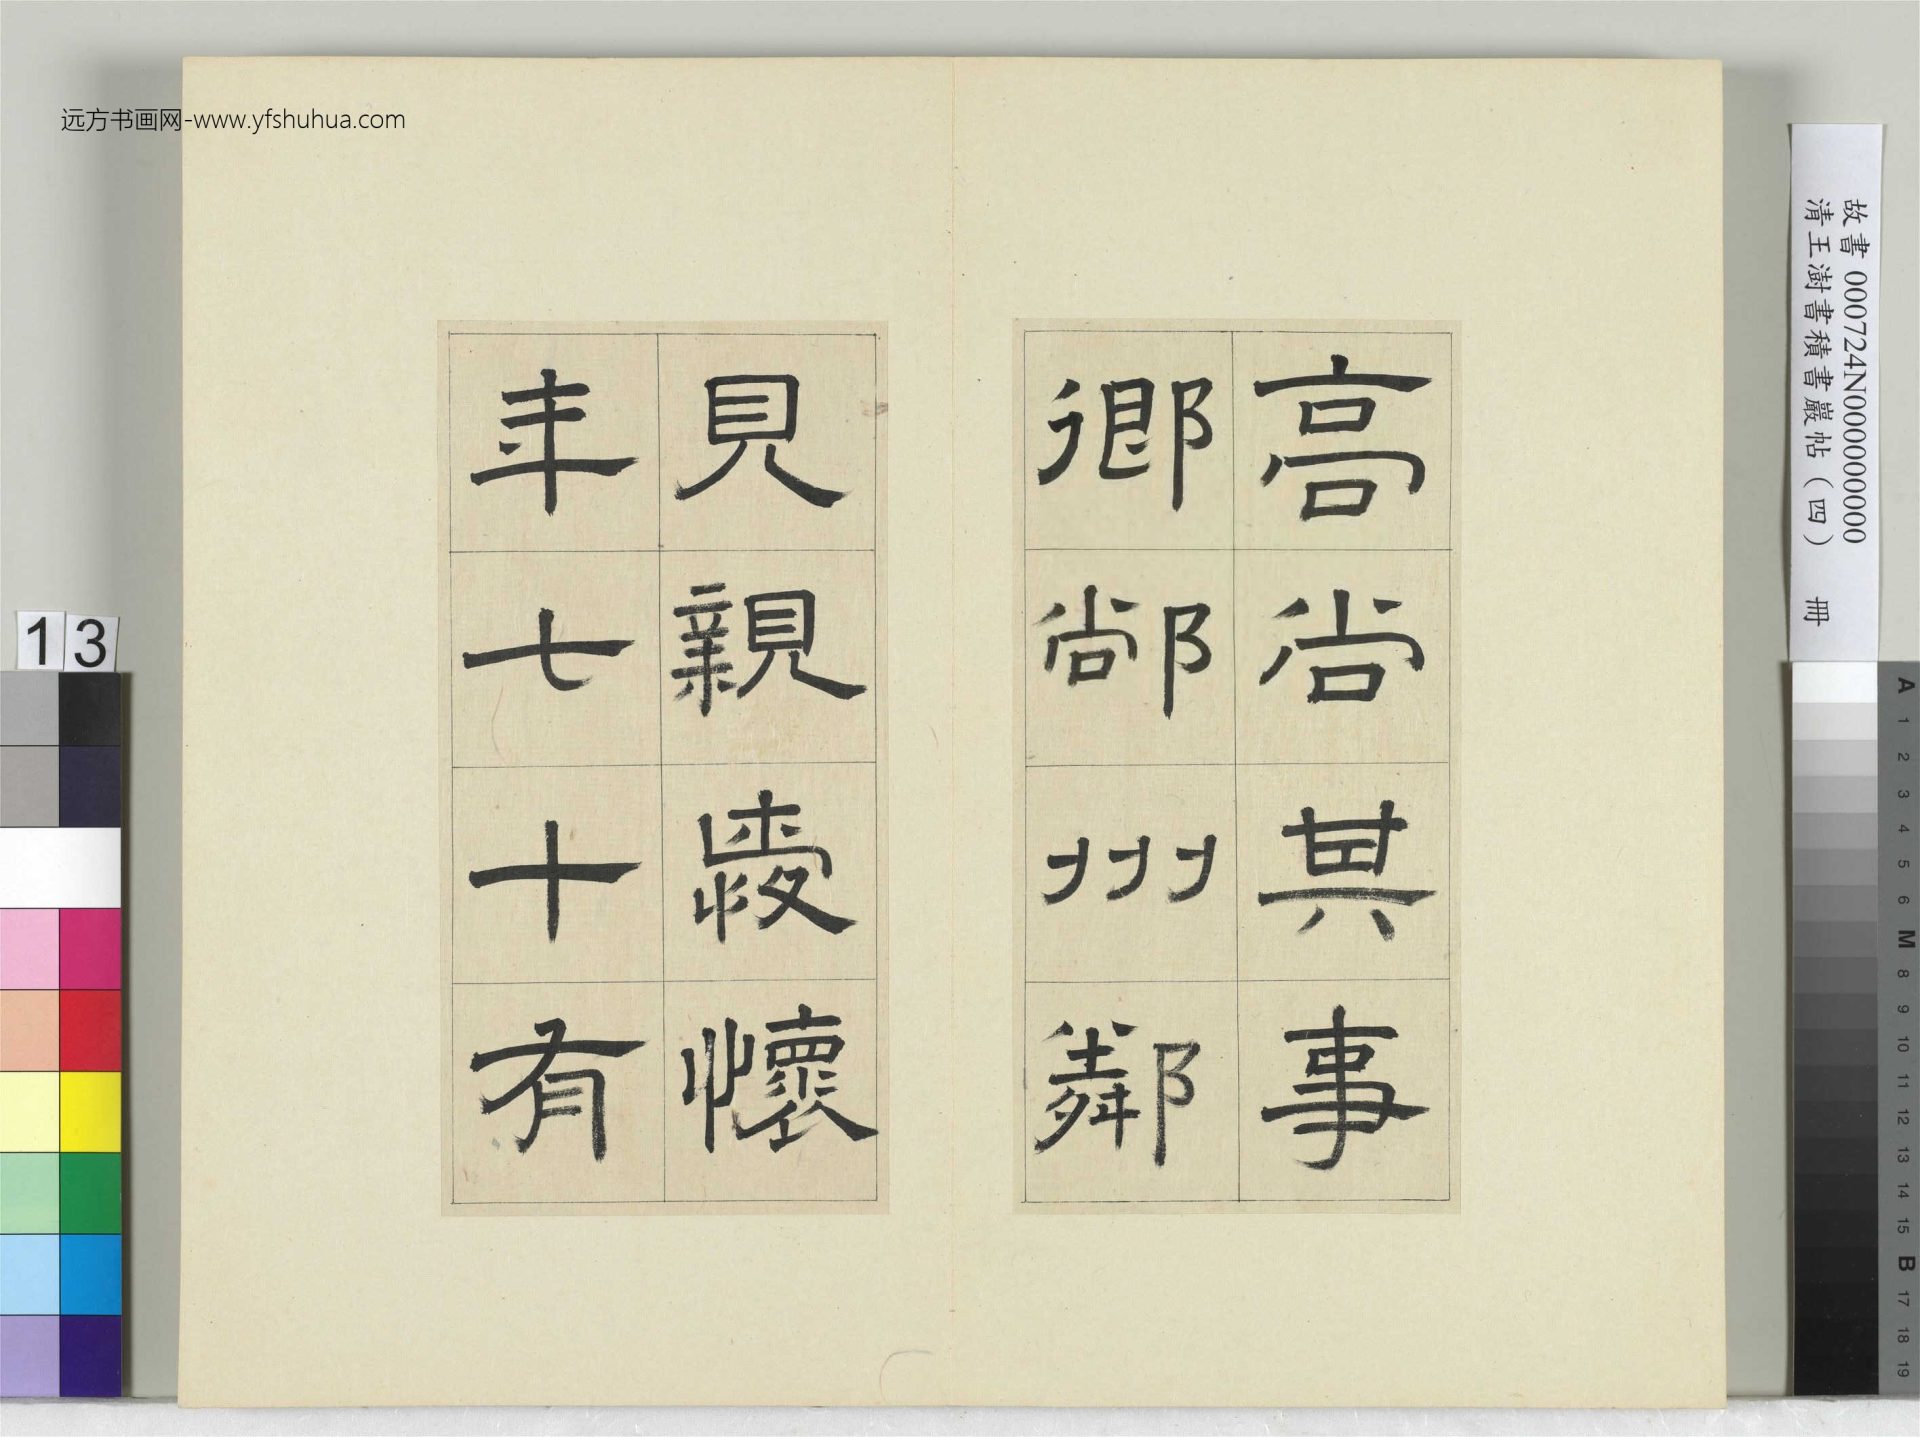 远方书画网-www.yfshuhua.com
高尚其事
鄉䣊州鄰
見親愛懷
年七十有
故書 000724N000000000
清王澍書積書巖帖(四) 冊
13
A 1 2 3 4 5 6 M 8 9 10 11 12 13 14 15 B 17 18 19